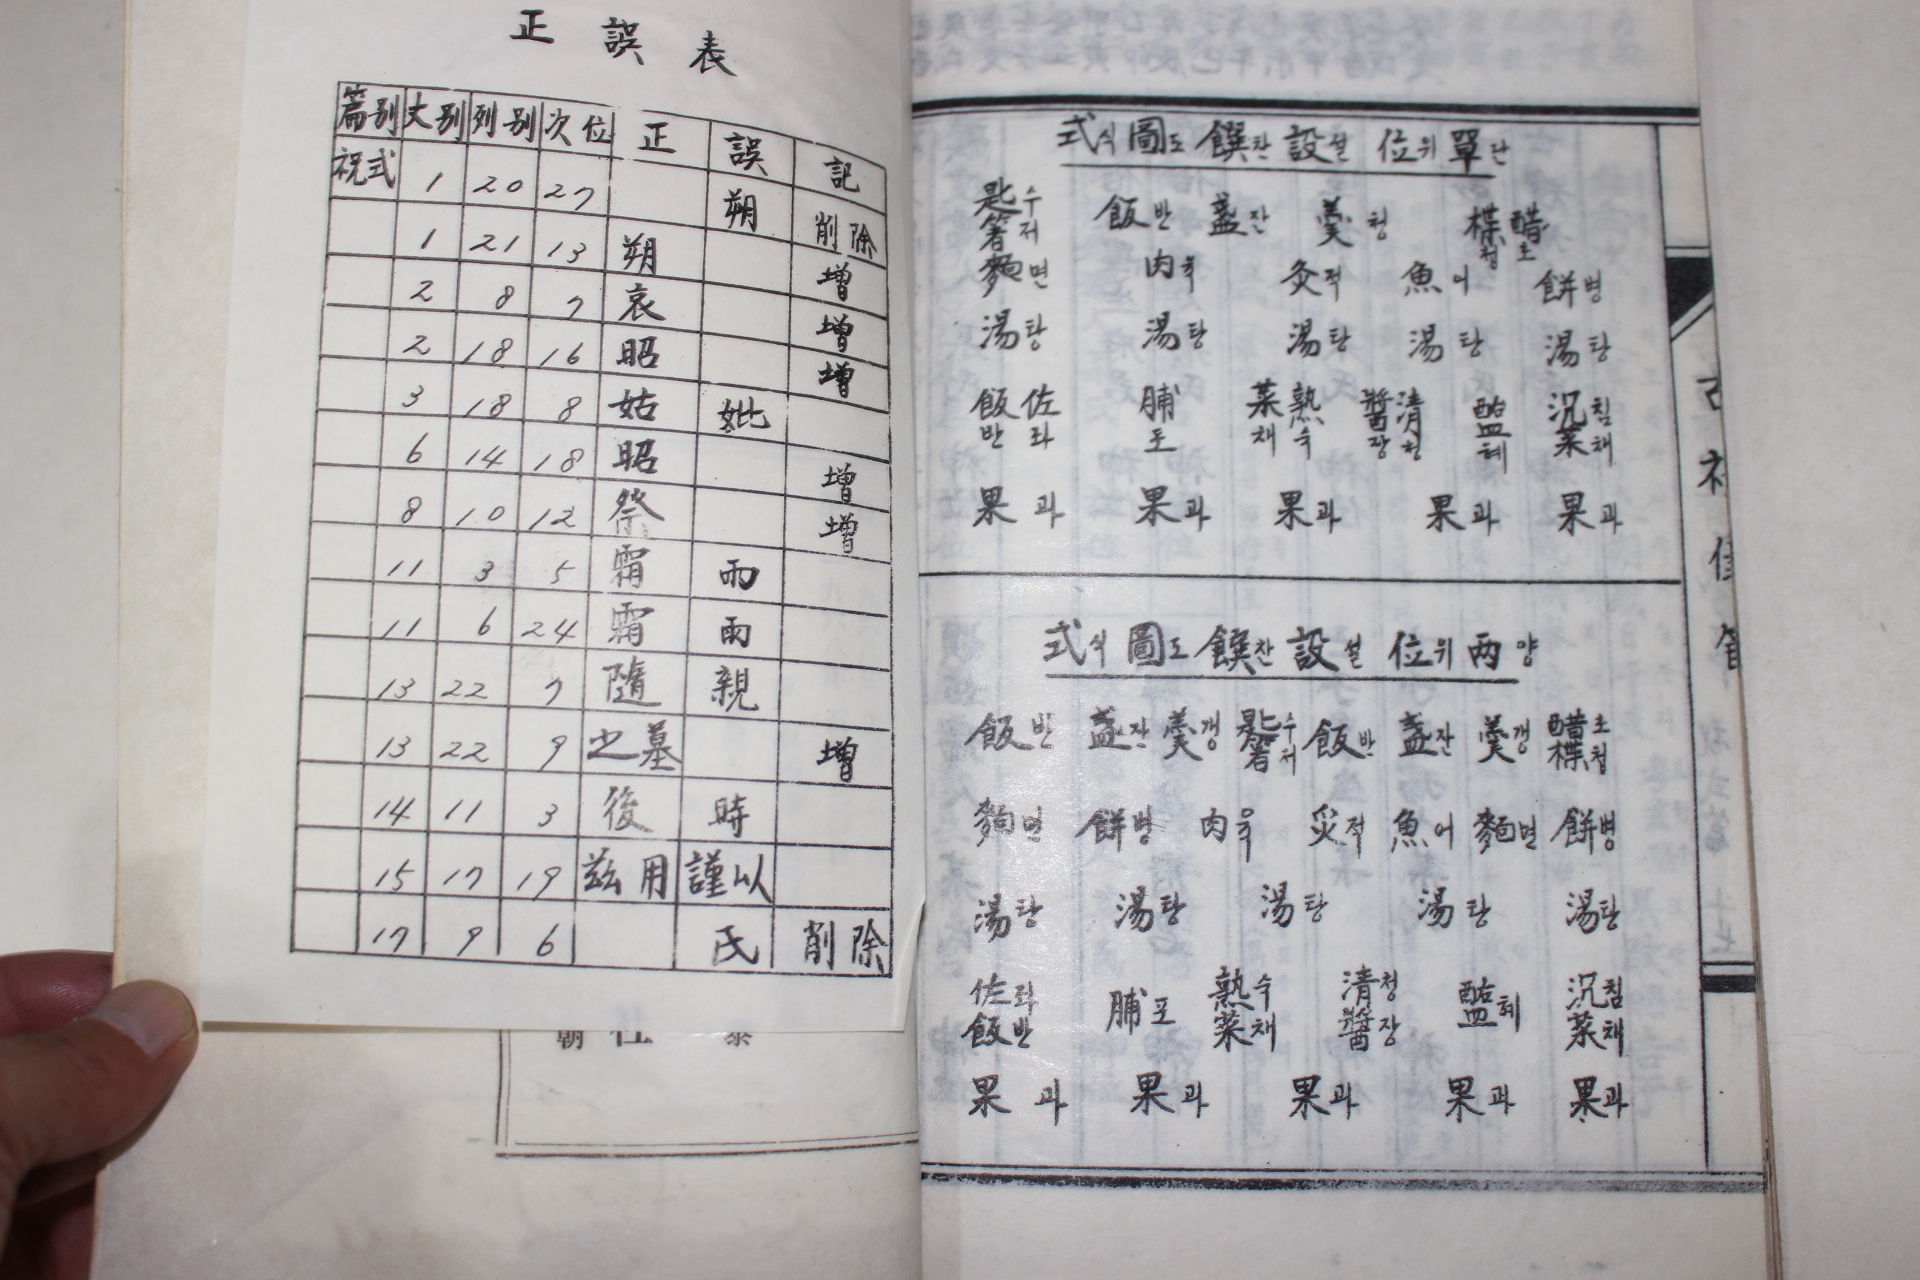 正誤表
篇別 丈別 列別 次位 正 誤 記
祝式 1 20 27 朔 削除
1 21 13 朔 增
2 8 7 哀 增
2 18 16 昭 增
3 18 8 姑 妣
6 14 18 昭 增
8 10 12 祭 增
11 3 5 霜 雨
11 6 24 霜 雨
13 22 7 隨 親
13 22 9 之墓 增
14 11 3 後 時
15 17 19 玆用 謹以
17 9 6 氏 削除
式식 圖도 饌찬 設설 位위 單단
匙수箸저 飯반 盞잔 羹청 楪청醋초
麵면 肉육 灸적 魚어 餠병
湯탕 湯탕 湯탕 湯탕 湯탕
飯반佐좌 脯포 菜채熟숙 醬장淸청 醢혜 沉침菜채
果과 果과 果과 果과 果과
式식 圖도 饌찬 設설 位위 兩양
飯반 盞잔 羹갱 匙수箸저 飯반 盞잔 羹갱 醋초楪청
麵면 餠병 肉육 災적 魚어 麵면 餠병
湯탕 湯탕 湯탕 湯탕 湯탕
佐좌飯반 脯포 熟숙菜채 淸청醬장 醢혜 沉침菜채
果과 果과 果과 果과 果과